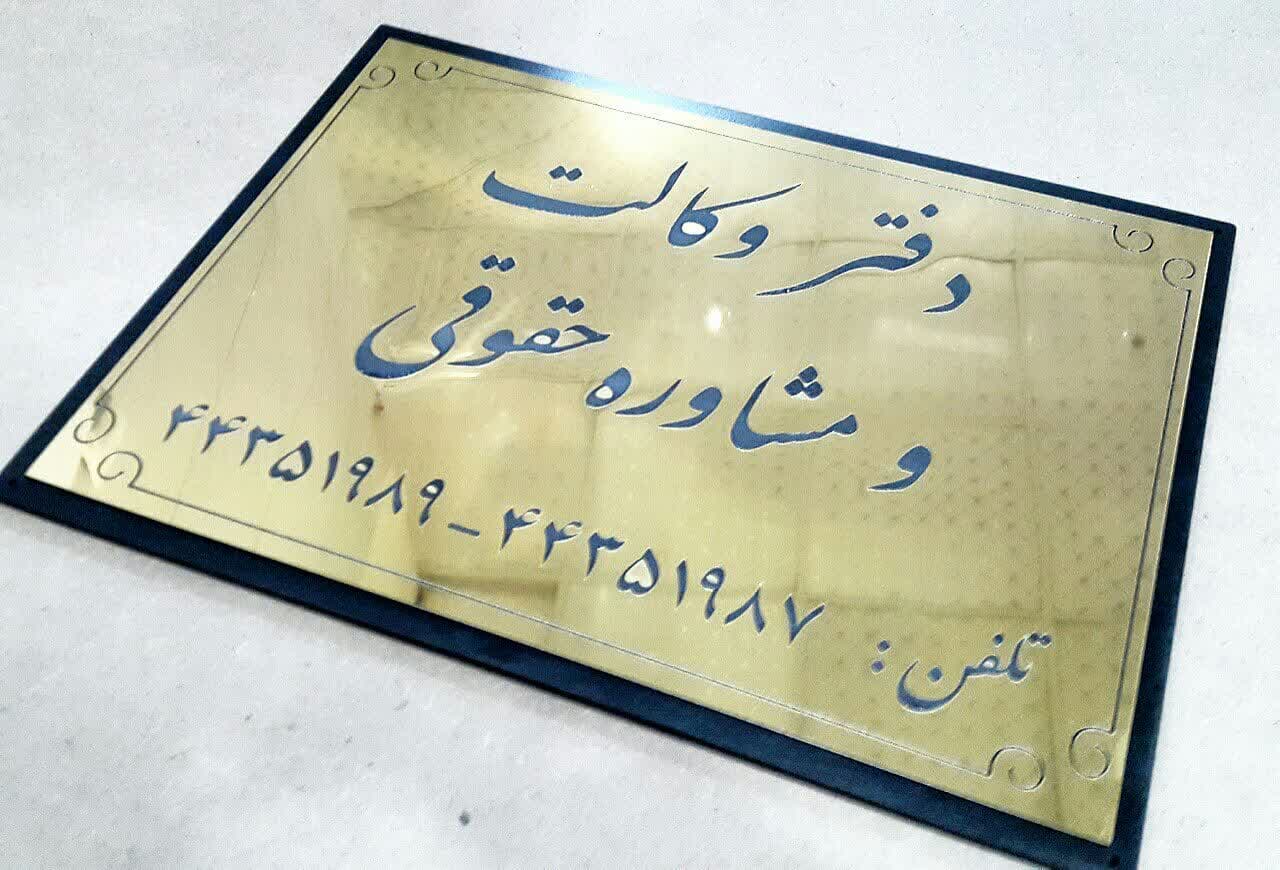 دفتر وکالت
و مشاوره حقوقی
تلفن : ۴۴۳۵۱۹۸۷ - ۴۴۳۵۱۹۸۹